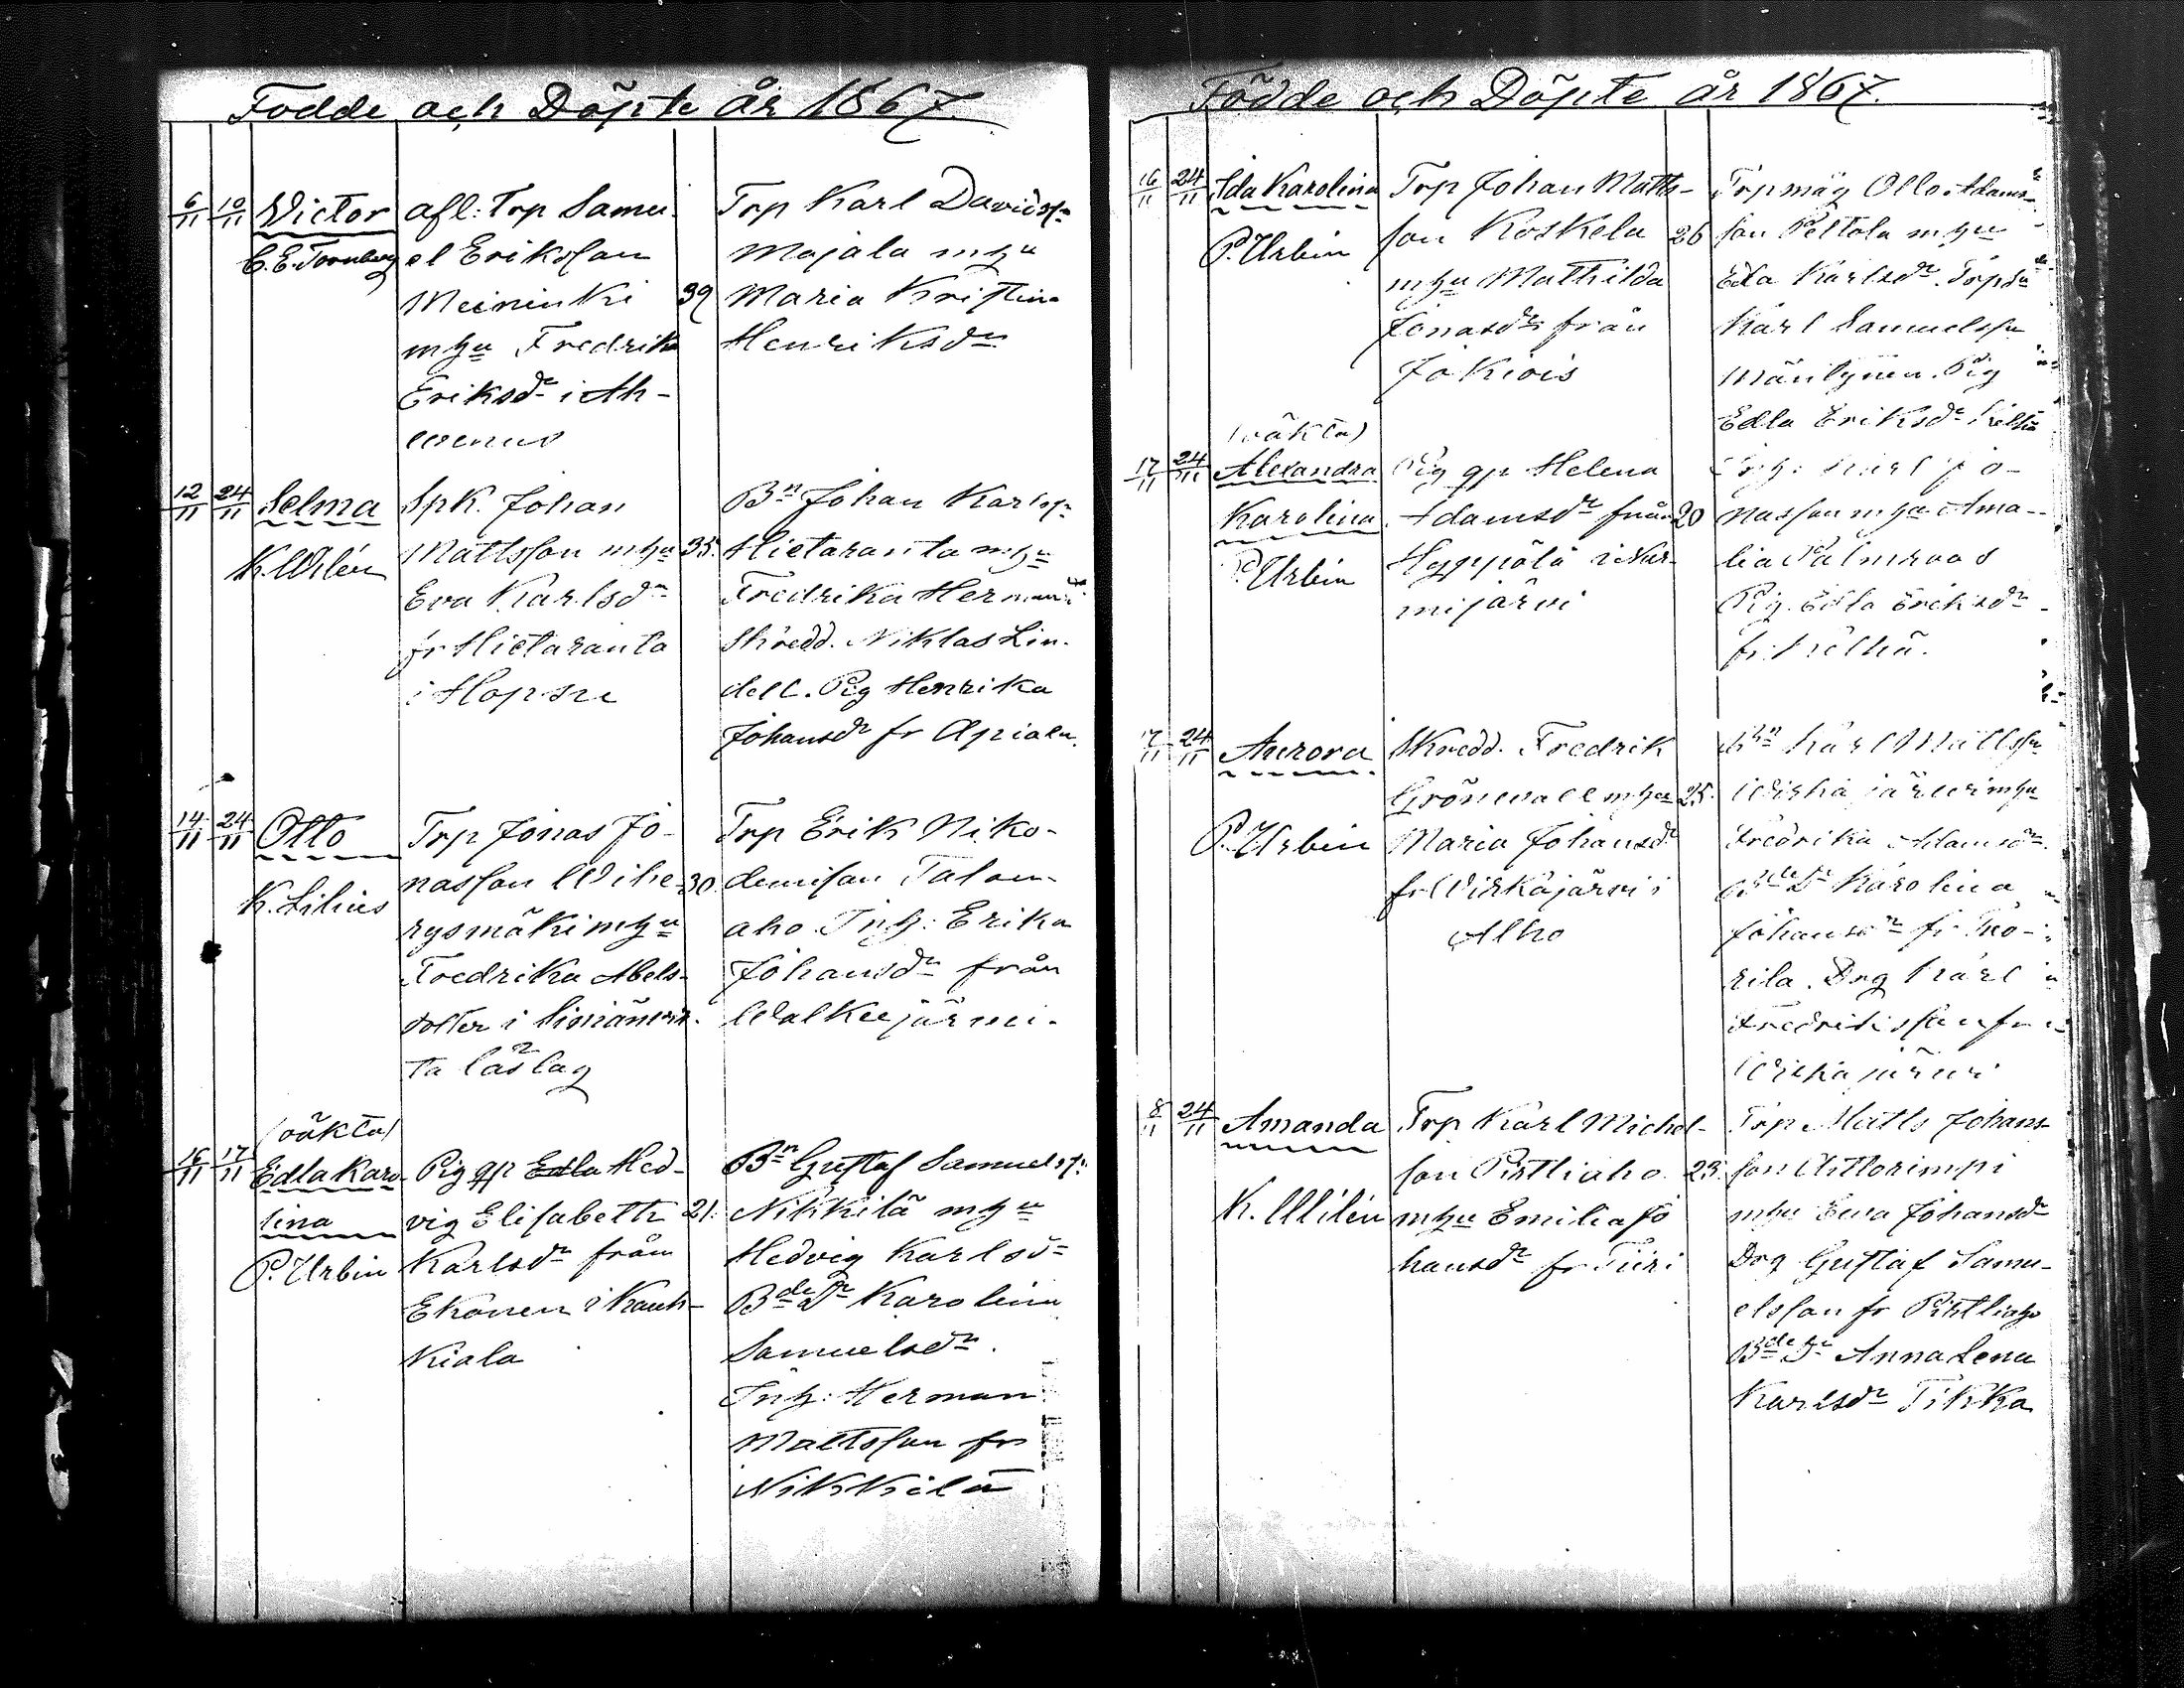 Födde och Döpte år 1867.
6/11 10/11 Victor
C. E. Tornberg
afl: Trp Samu-
el Eriksson
Meininki 39
mhu Fredrika
Eriksdr i Ah-
Trp Karl Davidss:n
Majala mhu
Maria Kristina
Henriksdr
12/11 24/11 Selma
K. Wilén
Spk. Johan
Mattsson mhu 35.
Eva Karlsdr
fr Hietaranta
i Hopsu
Bn Johan Karlss:n
Hietaranta mhu
Fredrika Hermansd:
Skredd. Niklas Lin-
dell. Pig Henrika
Johansdr fr Apiala.
14/11 24/11 Otto
K. Lilius
Trp Jonas Jo-
nasson Wihe- 30.
rysmäki mhu
Fredrika Abels-
dotter i
ta låslag
Trp Erik Niko-
demisson Talon-
aho. Inh: Erika
Johansdr från
Walkeejärwi.
(oäkta)
16/11 17/11 Edla Karo-
lina
P. Urbin
Pig qp Edla Hed-
vig Elisabeth 21.
Karlsdr från
Ekonen i Kauh-
kiala
Bn Gustaf Samuelss:n
Nikkilä mhu
Hedvig Karlsdr
Bde Dr Karolina
Samuelsdr.
Inh: Herman
Mattsson fr
Nikkilä
Födde och Döpte år 1867.
16/11 24/11 Ida Karolina
P. Urbin
Trp Johan Matts-
son Koskela 26
mhu Mathilda
Jonasdr från
Jokiois
Trpmåg Otto Adams-
son Peltola mhu
Edla Karlsdr. Trpsn
Karl Samuelss:n
Mäntynen. Pig
Edla Eriksdr
(oäkta)
17/11 24/11 Alexandra
Karolina
P. Urbin
Pig qp Helena
Adamsdr från 20
Hyppölä i Kur-
mijärvi
Inh: Karl Jo-
nasson mhu Ama-
lia Palmroos
Pig. Edla Eriksdr
17/11 24/11 Aurora
P. Urbin
Skredd. Fredrik
Grönwall mhu 25.
Maria Johansdr
fr Wirkäjärvi i
Alho
Bn Karl Mattss:n
Wirkäjärwi mhu
Fredrika Adamsdr.
Bde Dr Karolina
Johansdr fr
rila. Drg Karl
Fredriksson fr
Wirkäjärwi
8/11 24/11 Amanda
K. Wilén
Trp Karl Michel-
son Pistliaho 23.
mhu Emilia Jo
hansdr fr Tiiri
Trp Matts Johans-
son
mhu Eva Johansdr
Drg Gustaf Samu-
elsson fr Pistliaho
Bde Dr Anna Lena
Karlsdr Tikka